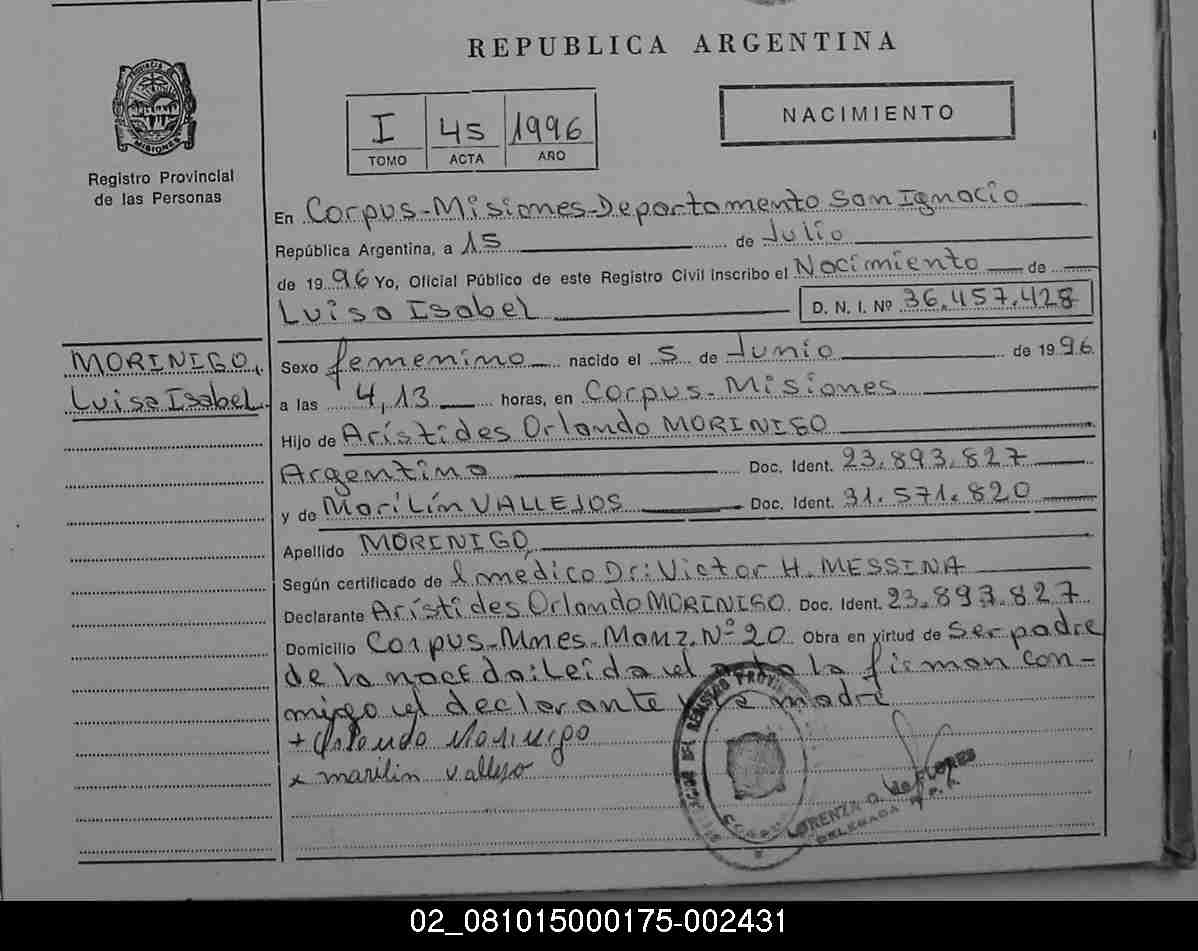 REPUBLICA ARGENTINA
PROVINCIA
MISIONES
Registro Provincial
de las Personas
I 45 1996
TOMO ACTA AÑO
NACIMIENTO
En Corpus-Misiones-Departamento San Ignacio
República Argentina, a 15 de Julio
de 1996 Yo, Oficial Público de este Registro Civil inscribo el Nacimiento de
Luisa Isabel D. N. I. Nº 36.457.428
MORINIGO,
Luisa Isabel
Sexo femenino nacido el 5 de Junio de 1996
a las 4,13 horas, en Corpus-Misiones
Hijo de Arístides Orlando MORINIGO
Argentino Doc. Ident. 23.893.827
y de Marilín VALLEJOS Doc. Ident. 31.571.820
Apellido MORINIGO,
Según certificado de el medico Dr: Victor H. MESSINA
Declarante Arístides Orlando MORINIGO. Doc. Ident. 23.893.827
Domicilio Corpus-Mnes-Manz. Nº 20 Obra en virtud de Ser padre
de la nacida: Leida el acta la firman con-
migo el declarante y la madre
+ Orlando Morinigo
x marilin vallejo
LORENZA G. de FLORES
DELEGADA R. P. P.
02_081015000175-002431